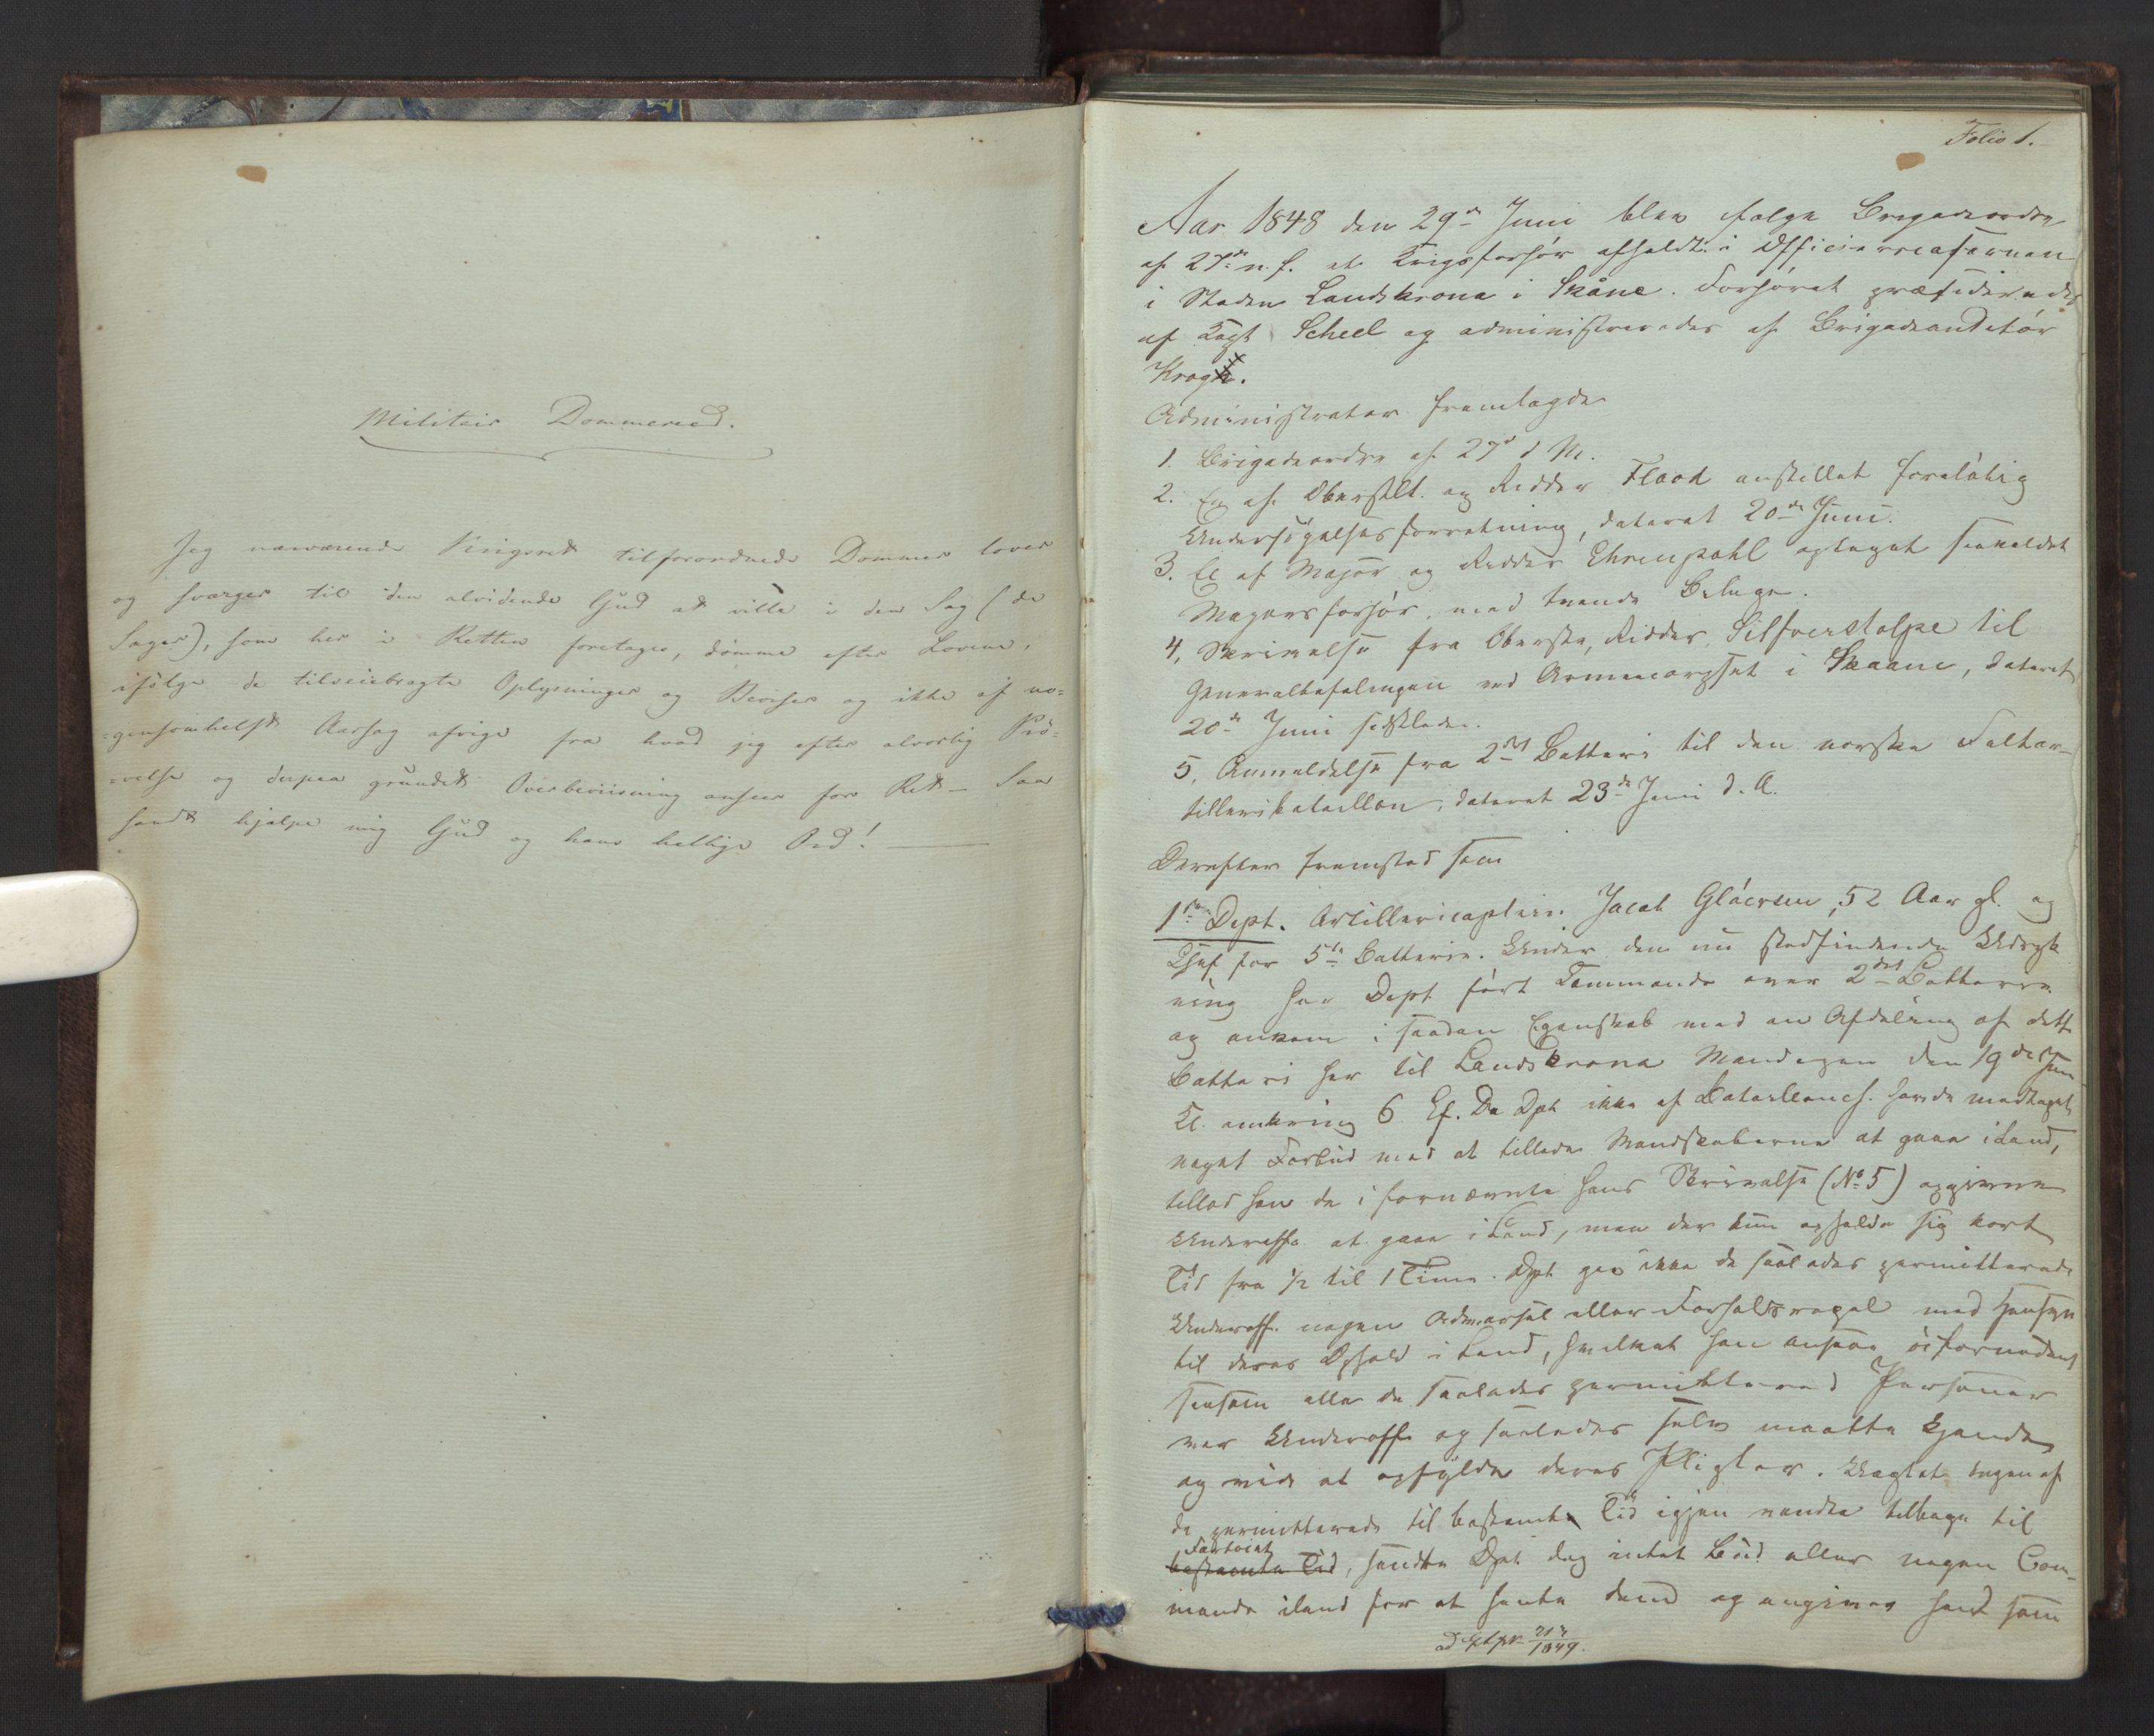 Militair Dommereed.
Jeg nærværende Krigsret tilforordnede Dommer lover
og sværger til den alvidende Gud at ville i den Sag (de
Sager), som her i Retten foretages, dömme efter Lovene,
ifölge de tilveiebragte Oplysninger og Beviser og ikke af no=
=gensomhelst Aarsag afvige fra hvad jeg efter alvorlig Prö=
=velse og derpaa grundet Overbeviisning anseer for Ret – Saa
sandt hjælpe mig Gud og hans hellige Ord! —
Folio 1.
Aar 1848 den 29de Juni blev ifølge Brigadeordre
af 27de n. f. et Krigsforhör afholdt i Officierscasernen
i Staden Landskrona i Skåne. Forhöret præsideredes
af Capt Scheel og administreredes af Brigadeauditör
Krog.
Administrator fremlagde
1. Brigadeordre af 27de d M.
2. En af Oberstlt. og Ridder Flood anstillet forelöbig
Undersögelsesforretning, dateret 20de Juni.
3. Et af Major og Ridder Ehrenpohl optaget saakaldet
Majorsforhör, med tvende Bilage.
4, Skrivelse fra Oberste, Ridder Silfverstolpe til
Generalbefalingen ved Armeecorpset i Skaane, dateret
20de Juni sidstleden.
5, Anmeldelse fra 2det Batteri til den norske Feltar-
tilleribataillon, dateret 23de Juni d. A.
Derefter fremstod som
1ste Dept. Artillericaptein Jacob Glöersen, 52 Aar gl. og
Chef for 5te Batterie. Under den nu stedfindende Udryk
ning har Dept fört Commando over 2det Batterie
og ankom i saadan Egenskab med en Afdeling af dette
Batteri her til Landskrona Mandagen den 19de Juni
Kl. omkring 6 Ef. Da Dpt ikke af Bataillonch. havde modtaget
noget Forbud mod at tillade Mandskaberne at gaae i Land,
tillod han de i fornævnte hans Skrivelse (No 5) opgivne
Underoff. at gaae i Land, men der kun opholde sig kort
Tid fra ½ til 1 Time. Dpt gav ikke de saaledes permitterede
Underoff. nogen Advarsel eller Forholdsregel med Hensyn
til deres Ophold i Land, hvilket han ansaae ufornödent
saasom alle de saaledes permitterede Personer
var Underoff. og saaledes selv maatte kjende
og vide at opfylde deres Pligter. Uagtet ingen af
de permitterede til bestemte Tid igjen vendte tilbage til
Fartöiet
bestemte Tid, sendte Dpt dog intet Bud eller nogen Com-
mando iland for at hente dem og angives herved som